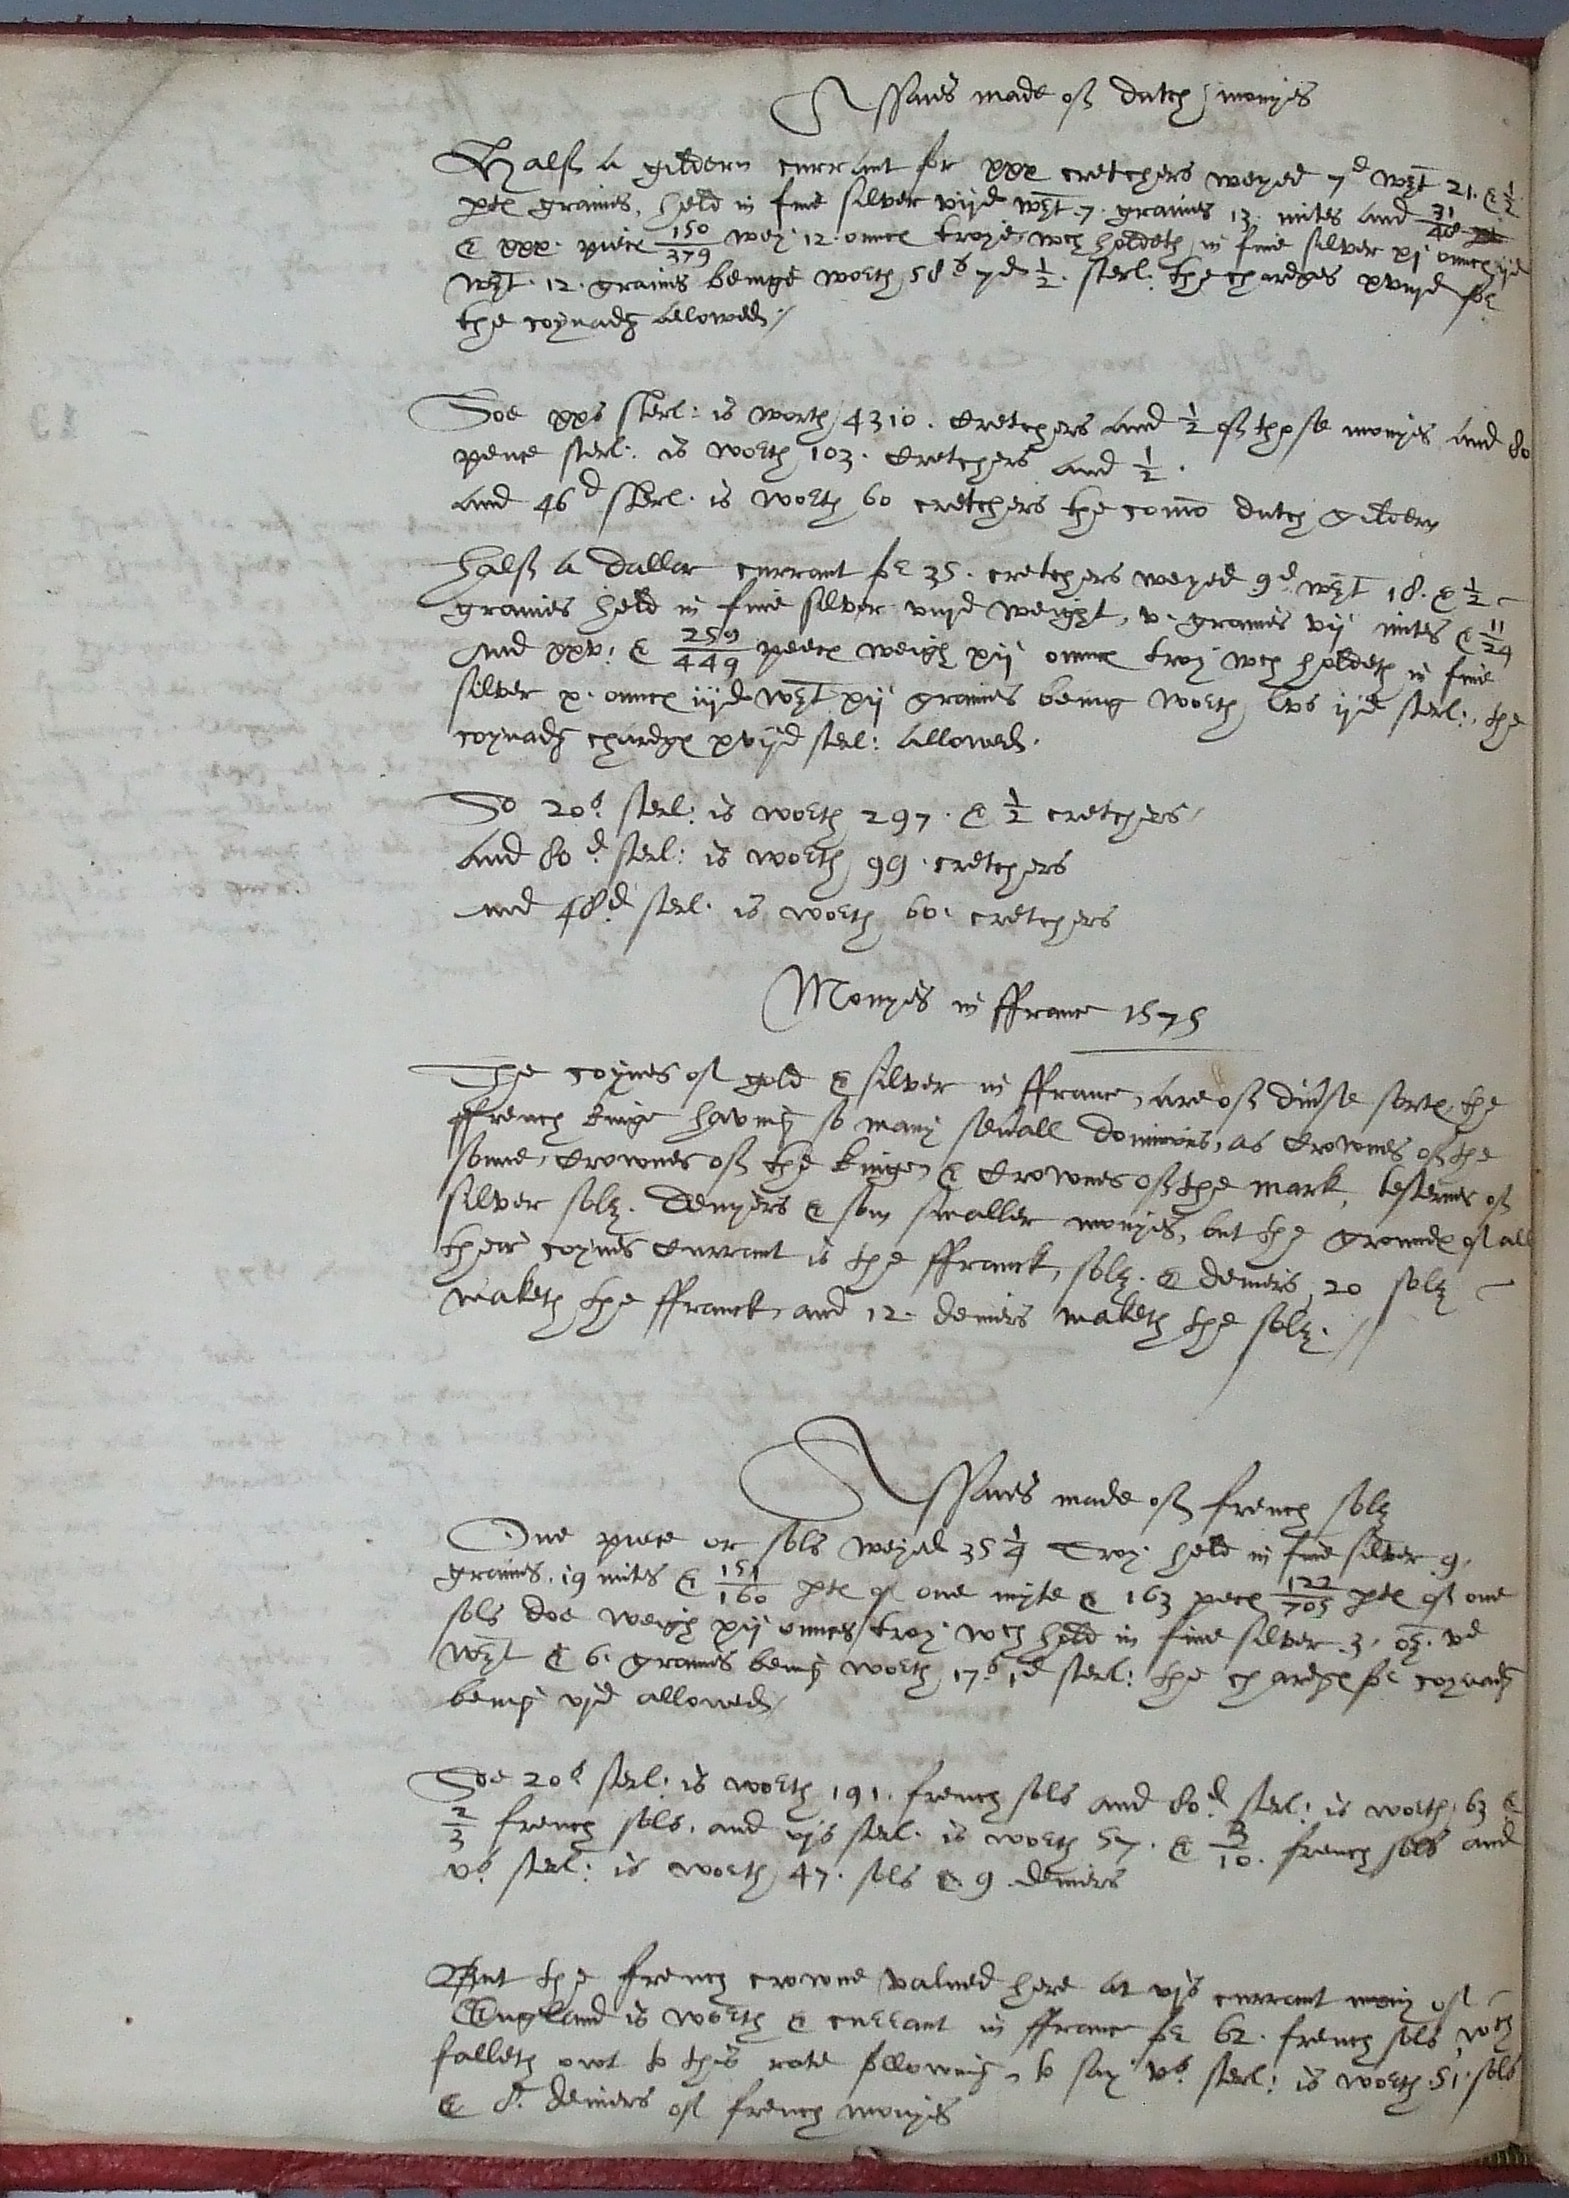 Assaies made of dutch monyes
Half a gildern currant for xxx cretchers weyed 7d wgt 21. & 1/2
ptes graines, held in fine silver viijd wgt. 7. graines 13. mites and 31/48
& xxx. piece 150/379 wey. 12. ounce troye wch holdeth in fine silver xj ounces ijd
wgt. 12. graines beinge worth 58s 7d 1/2. sterl: the chardges xviijd for
the coynadg allowed /
Soe xxs sterl: is worth 4310. cretchers and 1/2 of these monyes and 80
pence sterl: is worth 103. cretchers and 1/2.
and 46d sterl. is worth 60 cretchers the comō dutch gildern
Half a Dallor currant for 35. cretchers weyed 9d. wgt 18. & 1/2
graines held in fine silver viijd weight, v. graines vij mites & 11/24
And xxv. & 259/449 peece weigh xij ounce troy wch holdeth in fine
silver x. ounce iijd wgt xij graines being worth lvs ijd sterl: the
coynadg chardge xvijd sterl: allowed.
So 20s. sterl: is worth 297. & 1/2 cretchers /
and 80d. sterl: is worth 99. cretchers
and 48d. sterl. is worth 60. cretchers
Monyes in ffrance 1575
The coynes of gold & silver in ffrance, are of diverse sorts, the
ffrench kinge having so many severall dominions, as Crownes of the
sonne, Crownes of the kinge, & Crownes of the mark, testernes of
silver solz. Denyers & som smaller monyes, but the grounde of all
their coynes Currant is the ffranck, solz. & deniers, 20 solz
maketh the ffranck, and 12. deniers maketh the solz. //
Assaies made of french solz
One piece or sols weyed 35 1/4 Troy held in fine silver 9.
graines. 19 mites & 151/160 pte of one myte & 163 peces 122/705 pte of one
sols doe weigh xij ounces troy wch hold in fine silver. 3. oz. vd
wgt & 6. graines being worth 17s 1d sterl: the chardge for coynadg
being vjd allowed /
Soe 20s sterl: is worth 191. french sols and 80d. sterl: is worth 63 &
2/3 french sols. and vjs sterl. is worth 57. & 3/10. french sols and
vs. sterl: is worth 47. sols & 9. deniers
But the french crowne valued here at vjs currant mony of
England is worth & currant in ffrance for 62. french sols wch
falleth owt to this rate following, to say vs. sterl: is worth. 51. sols
& 8. deniers of french monyes